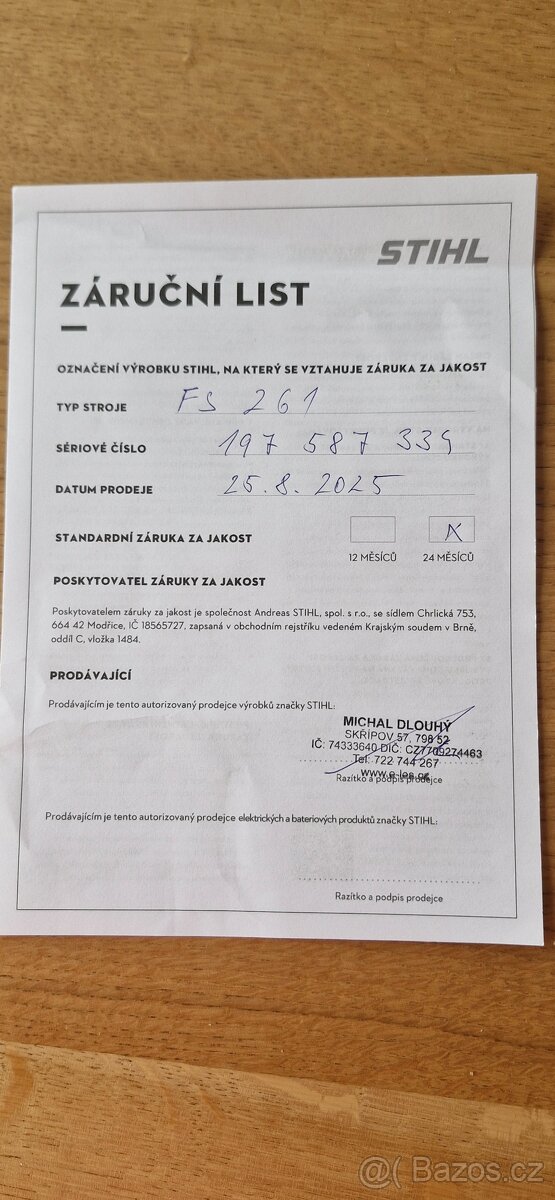 STIHL
ZÁRUČNÍ LIST
OZNAČENÍ VÝROBKU STIHL, NA KTERÝ SE VZTAHUJE ZÁRUKA ZA JAKOST
TYP STROJE FS 261
SÉRIOVÉ ČÍSLO 197 587 339
DATUM PRODEJE 25.8.2025
STANDARDNÍ ZÁRUKA ZA JAKOST X
12 MĚSÍCŮ 24 MĚSÍCŮ
POSKYTOVATEL ZÁRUKY ZA JAKOST
Poskytovatelem záruky za jakost je společnost Andreas STIHL, spol. s r.o., se sídlem Chrlická 753,
664 42 Modřice, IČ 18565727, zapsaná v obchodním rejstříku vedeném Krajským soudem v Brně,
oddíl C, vložka 1484.
PRODÁVAJÍCÍ
Prodávajícím je tento autorizovaný prodejce výrobků značky STIHL:
MICHAL DLOUHÝ
SKŘÍPOV 57, 798 52
IČ: 74333640 DIČ: CZ7709274463
Tel: 722 744 267
www.e-les.cz
Razítko a podpis prodejce
Prodávajícím je tento autorizovaný prodejce elektrických a bateriových produktů značky STIHL:
Razítko a podpis prodejce
@( Bazos.cz